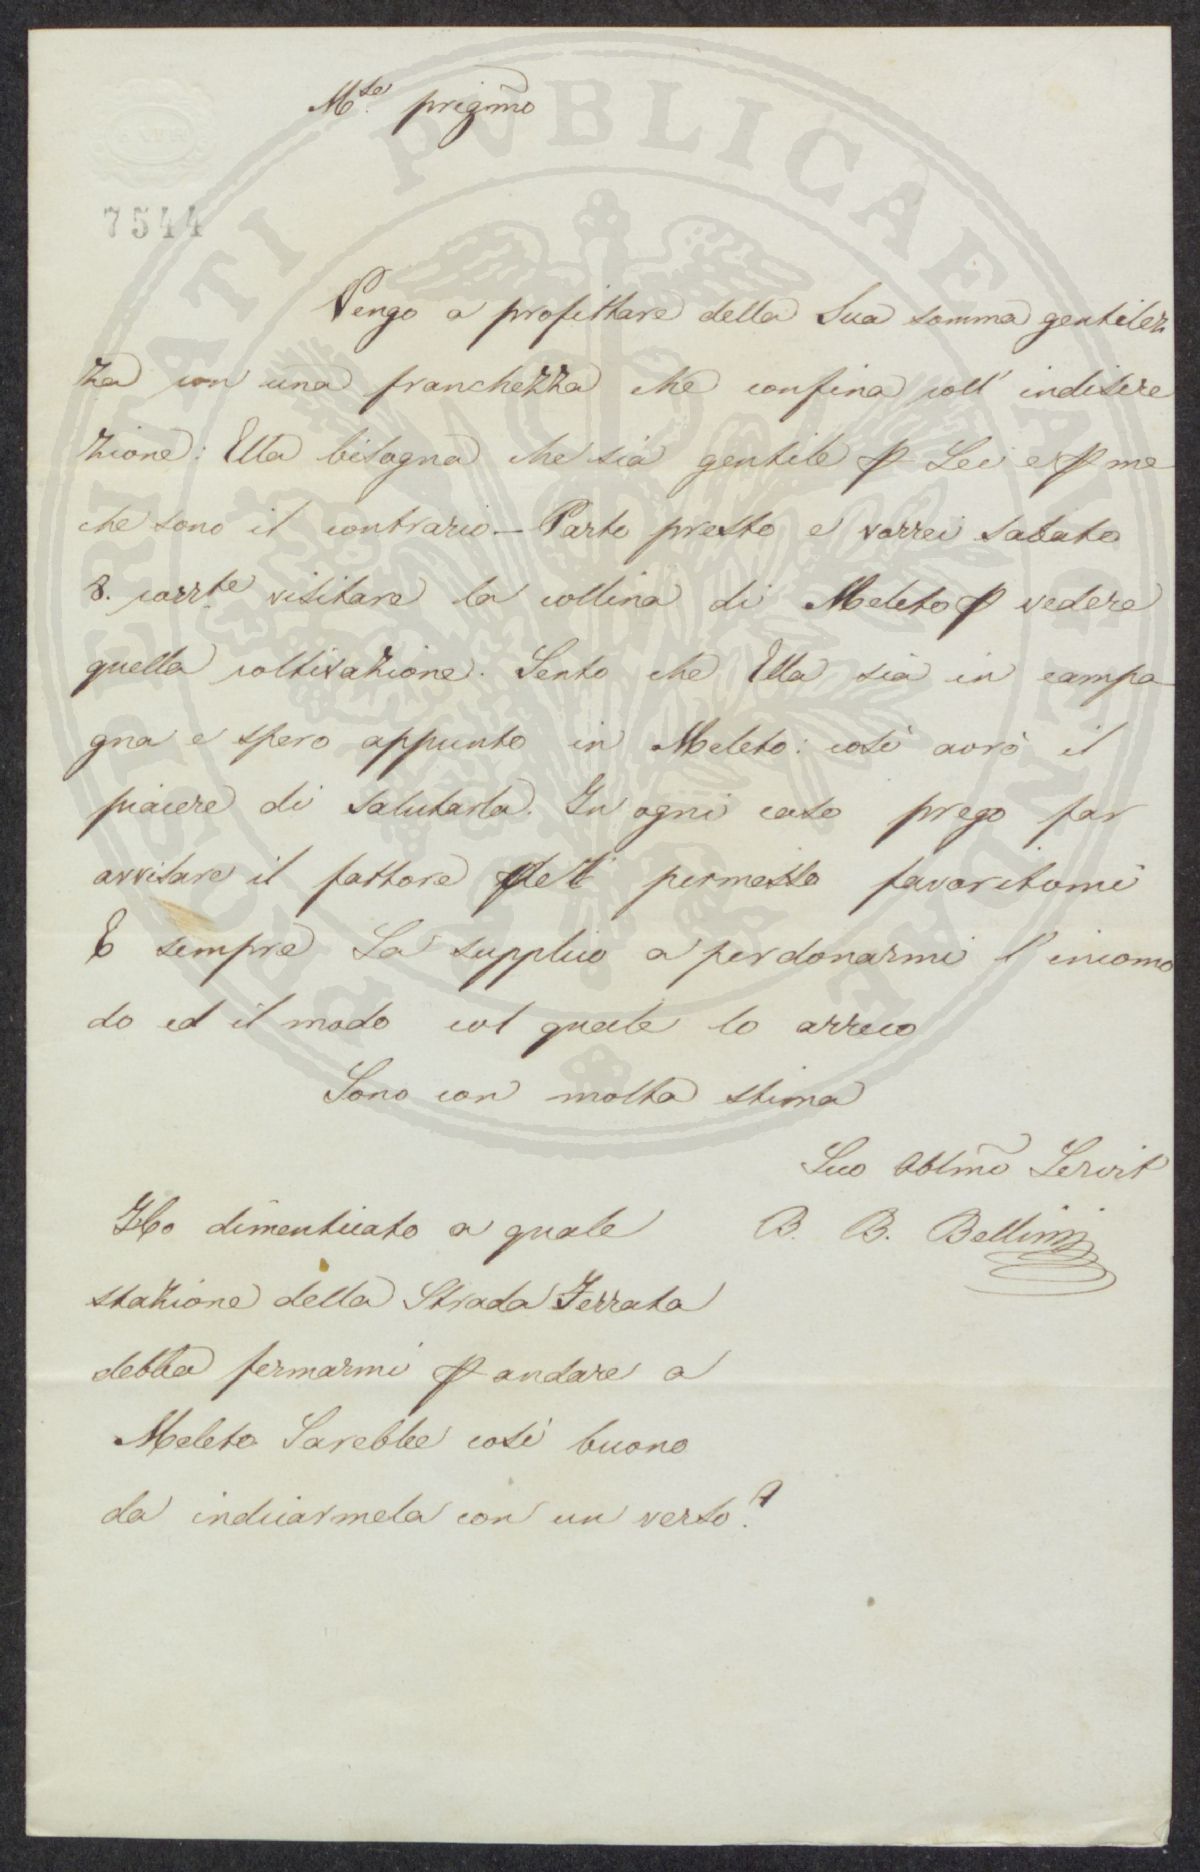 Mse. pregmo
7544
Vengo a profittare della Sua somma gentilez
za con una franchezza che confina coll' indiscre
zione: Ella bisogna che sia gentile p Lei e p me
che sono il contrario — Parto presto e vorrei sabato
8. corrte visitare la collina di Meleto p vedere
quella coltivazione. Sento che Ella sia in campa
gna e spero appunto in Meleto: così avrò il
piacere di salutarla. In ogni caso prego far
avvisare il fattore del permesso favoritomi
E sempre La supplico a perdonarmi l'incomo
do ed il modo col quale lo arreco
Sono con molta stima
Suo Obblmo Servit
B. B. Bellini
Ho dimenticato a quale
stazione della Strada Ferrata
debba fermarmi p andare a
Meleto Sarebbe così buono
da indicarmela con un verso?
PVBLICAE